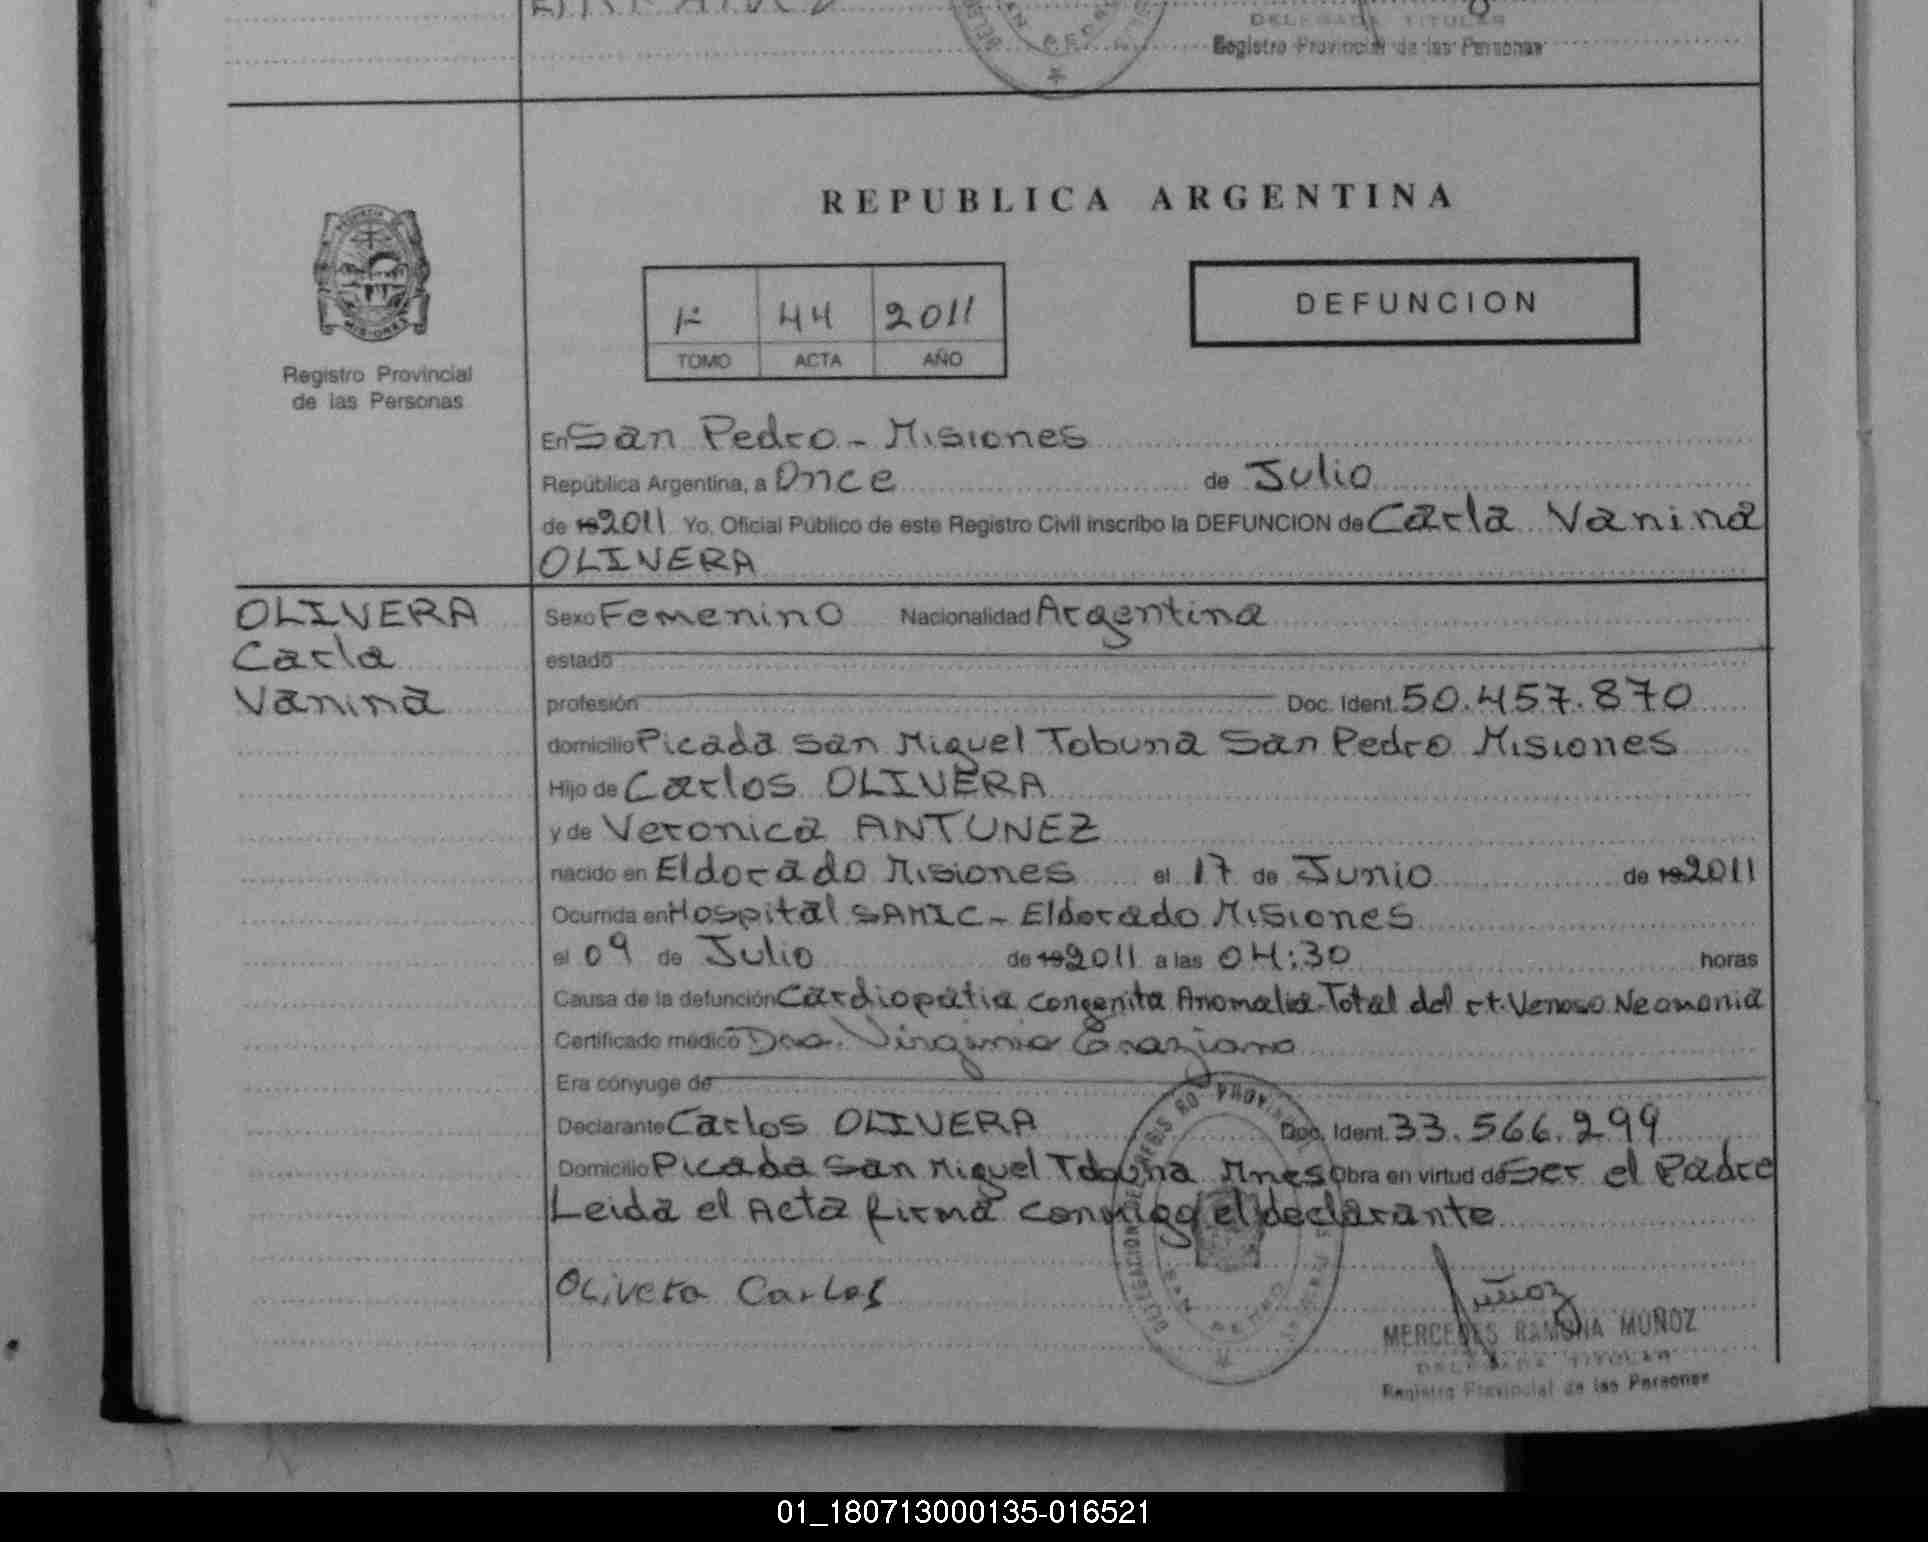 DELEGADA TITULAR
Registro Provincial de las Personas
REPUBLICA ARGENTINA
1º 44 2011
TOMO ACTA AÑO
DEFUNCION
MISIONES
Registro Provincial
de las Personas
En San Pedro - Misiones
República Argentina, a Once de Julio
de 19 2011 Yo, Oficial Público de este Registro Civil inscribo la DEFUNCION de Carla Vanina
OLIVERA
OLIVERA
Carla
Vanina
Sexo Femenino Nacionalidad Argentina
estado
profesión Doc. Ident. 50.457.870
domicilio Picada San Miguel Tobuna San Pedro Misiones
Hijo de Carlos OLIVERA
y de Veronica ANTUNEZ
nacido en Eldorado Misiones el 17 de Junio de 19 2011
Ocurrida en Hospital SAMIC - Eldorado Misiones
el 09 de Julio de 19 2011 a las 04:30 horas
Causa de la defunción Cardiopatia Congenita Anomalia Total del rt. Venoso Neomonia
Certificado médico Dra. Virginia Graziano
Era cónyuge de
Declarante Carlos OLIVERA Doc. Ident. 33.566.299
Domicilio Picada San Miguel Tobuna Mnes Obra en virtud de Ser el Padre
Leida el Acta firma conmigo el declarante
Olivera Carlos
Muñoz
MERCEDES RAMONA MUÑOZ
DELEGADA TITULAR
Registro Provincial de las Personas
01_180713000135-016521